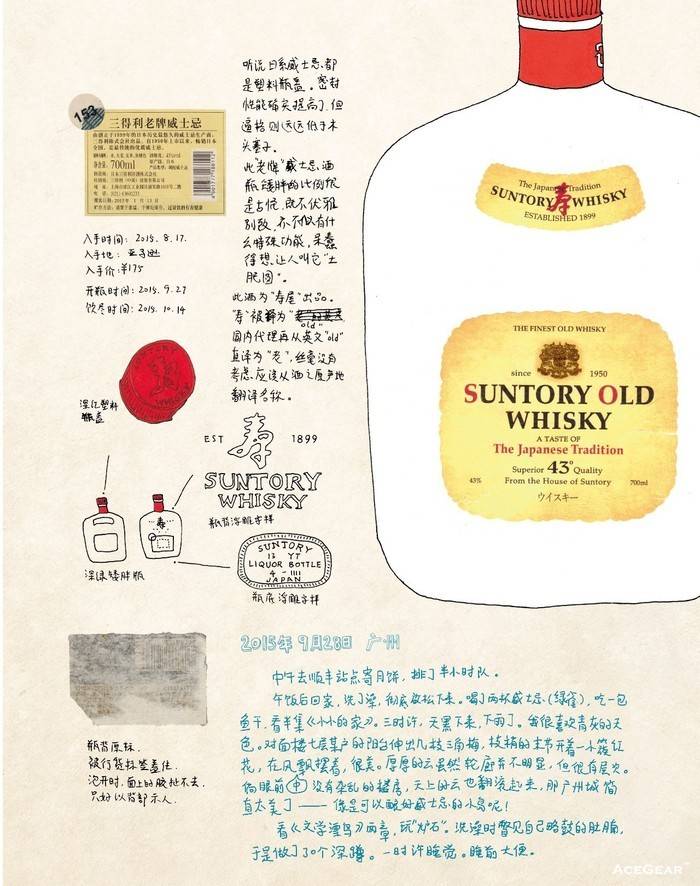 听说日系威士忌都
是塑料瓶盖。密封
性能确实提高了,但
逼格则远远低于木
头塞子。
此"老牌"威士忌,酒
瓶矮胖的比例很
是古怪,既不优雅
别致,亦不似有什
么特殊功能,呆蠢
得想让人叫它"土
肥圆"。
此酒为"寿屋"出品。
"寿"被
old"
国内代理再从英文"old"
直译为"老",丝毫没有
考虑应该从酒之原产地
翻译名称。
153
三得利老牌威士忌
净含量: 700ml
入手时间: 2015.8.17.
入手地: 亚马逊
入手价: ¥175
开瓶时间: 2015.9.27
饮尽时间: 2015.10.14
SUNTORY
WHISKY
深红塑料
瓶盖
EST 寿 1899
SUNTORY
WHISKY
瓶背浮雕字样
寿
深绿矮胖瓶
SUNTORY
13 YT
LIQUOR BOTTLE
4 - 1111
JAPAN
瓶底浮雕字样
The Japanese Tradition
SUNTORY 寿 WHISKY
ESTABLISHED 1899
THE FINEST OLD WHISKY
since 1950
SUNTORY OLD
WHISKY
A TASTE OF
The Japanese Tradition
Superior 43° Quality
43% From the House of Suntory 700ml
ウイスキー
瓶背原标。
被行货标签盖住。
泡开时,面上的胶扯不去,
只好以背部示人。
2015年9月28日 广州
中午去顺丰站点寄月饼,排了半小时队。
午饭后回家,洗了澡,彻底放松下来。喝了两杯威士忌(绿雀),吃一包
鱼干,看半集《小小的家》。三时许,天黑下来,下雨了。我很喜欢青灰的天
色。对面楼七层某户的阳台伸出几枝三角梅,枝梢的主节开着一簇红
花,在风飘摆着,很美。厚厚的云虽然轮廓并不明显,但很有层次。
倘眼前中没有杂乱的楼房,天上的云也翻滚起来,那广州城简
直太美了——像是可以酿好威士忌的小岛呢!
看《文学漂鸟》两章,玩"炉石"。洗澡时瞥见自己略鼓的肚腩,
于是做了30个深蹲。一时许睡觉。睡前大便。
ACEGEAR